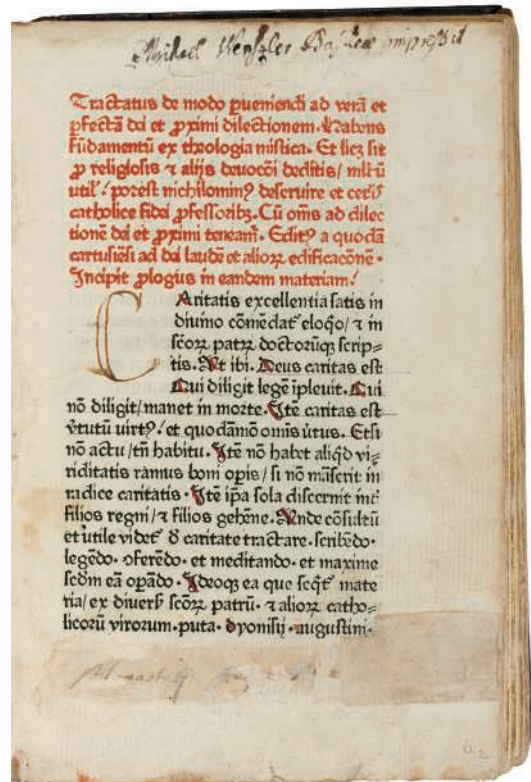 Michael Wenszler Basileæ impressit
Tractatus de modo ꝑueniendi ad verā et
ꝑfectā dei et ꝓximi dilectionem. Habens
fūdamentū ex theologia mistica. Et licꝫ sit
ꝓ religiosis ⁊ alijs deuocōi deditis / mltū
util'ᵉ potest nichilominꝰ deseruire et ceteris
catholice fidei ꝓfessoribꝫ. Cū om̄s ad dilec
tionē dei et ꝓximi teneam̄. Editꝰ a quodā
cartusiēsi ad dei laudē et alioꝝ edificacōnē.
Incipit ꝓlogus in eandem materiam.
C Aritatis excellentia satis in
diuino cōmēdat̄ eloqͦ / ⁊ in
scōꝝ patꝝ doctorūqꝫ scrip⸗
tis. Ut ibi. Deus caritas est
Qui diligit legē īpleuit. Qui
nō diligit / manet in morte. Itē caritas est
v̄tutū virtꝰ / et quodāmō omīs v̄tus. Etsi
nō actu / tn̄ habitu. Itē nō habet aliqͥd vi⸗
riditatis ramus boni opis / si nō māserit in
radice caritatis. Itē ip̄a sola discernit int̄
filios regni / ⁊ filios gehēne. Unde cōsultū
et utile videt̄ d̄ caritate tractare. scribēdo.
legēdo. ꝯferēdo. et meditando. et maxime
scdm eā oꝑādo. Ideoqꝫ ea que seqͥt̄ mate
ria / ex diuers̄ scōꝝ patrū. ⁊ alioꝝ catho⸗
licorū virorum. puta. dyonisij. augustini.
a 2